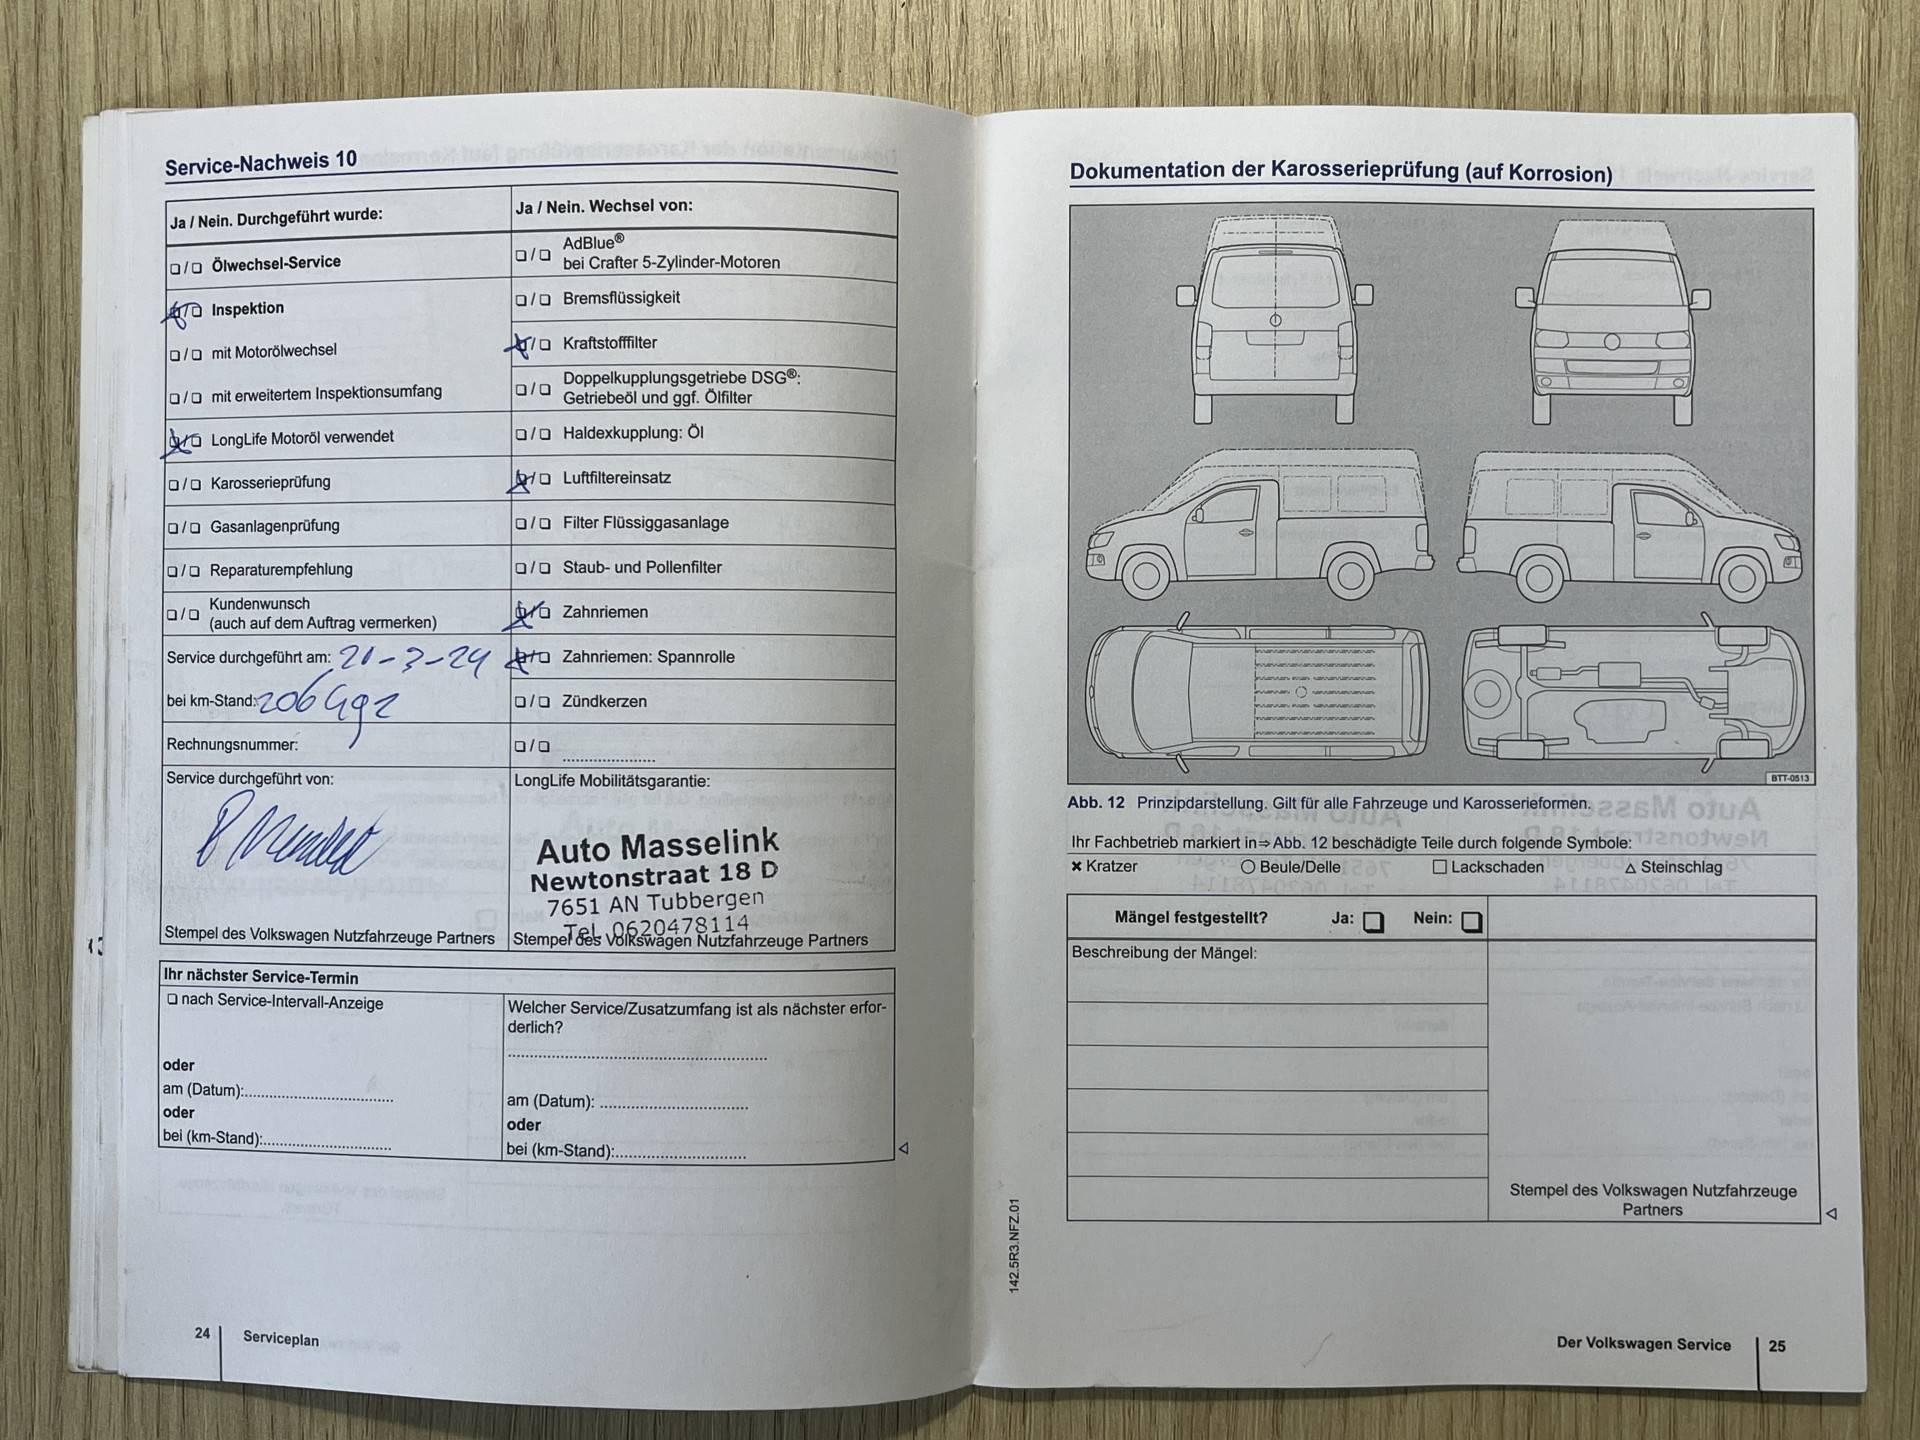 Service-Nachweis 10
Ja / Nein. Durchgeführt wurde:
❑ / ❑ Ölwechsel-Service
❑ / ❑ Inspektion
❑ / ❑ mit Motorölwechsel
❑ / ❑ mit erweitertem Inspektionsumfang
❑ / ❑ LongLife Motoröl verwendet
❑ / ❑ Karosserieprüfung
❑ / ❑ Gasanlagenprüfung
❑ / ❑ Reparaturempfehlung
❑ / ❑ Kundenwunsch
(auch auf dem Auftrag vermerken)
Service durchgeführt am: 21-3-24
bei km-Stand:
Rechnungsnummer:
Service durchgeführt von:
Stempel des Volkswagen Nutzfahrzeuge Partners
Ja / Nein. Wechsel von:
❑ / ❑ AdBlue®
bei Crafter 5-Zylinder-Motoren
❑ / ❑ Bremsflüssigkeit
❑ / ❑ Kraftstofffilter
❑ / ❑ Doppelkupplungsgetriebe DSG®:
Getriebeöl und ggf. Ölfilter
❑ / ❑ Haldexkupplung: Öl
❑ / ❑ Luftfiltereinsatz
❑ / ❑ Filter Flüssiggasanlage
❑ / ❑ Staub- und Pollenfilter
❑ / ❑ Zahnriemen
❑ / ❑ Zahnriemen: Spannrolle
❑ / ❑ Zündkerzen
❑ / ❑ ......................
LongLife Mobilitätsgarantie:
Auto Masselink
Newtonstraat 18 D
7651 AN Tubbergen
Tel. 0620478114
Stempel des Volkswagen Nutzfahrzeuge Partners
Ihr nächster Service-Termin
❑ nach Service-Intervall-Anzeige
oder
am (Datum):..................................
oder
bei (km-Stand):..............................
Welcher Service/Zusatzumfang ist als nächster erfor-
derlich?
............................................................
am (Datum): ..................................
oder
bei (km-Stand):..............................
24 Serviceplan
Dokumentation der Karosserieprüfung (auf Korrosion)
BTT-0513
Abb. 12 Prinzipdarstellung. Gilt für alle Fahrzeuge und Karosserieformen.
Ihr Fachbetrieb markiert in⇒Abb. 12 beschädigte Teile durch folgende Symbole:
✖ Kratzer ◯ Beule/Delle □ Lackschaden △ Steinschlag
Mängel festgestellt? Ja: ❑ Nein: ❑
Beschreibung der Mängel:
Stempel des Volkswagen Nutzfahrzeuge
Partners
142.5R3.NFZ.01
Der Volkswagen Service 25